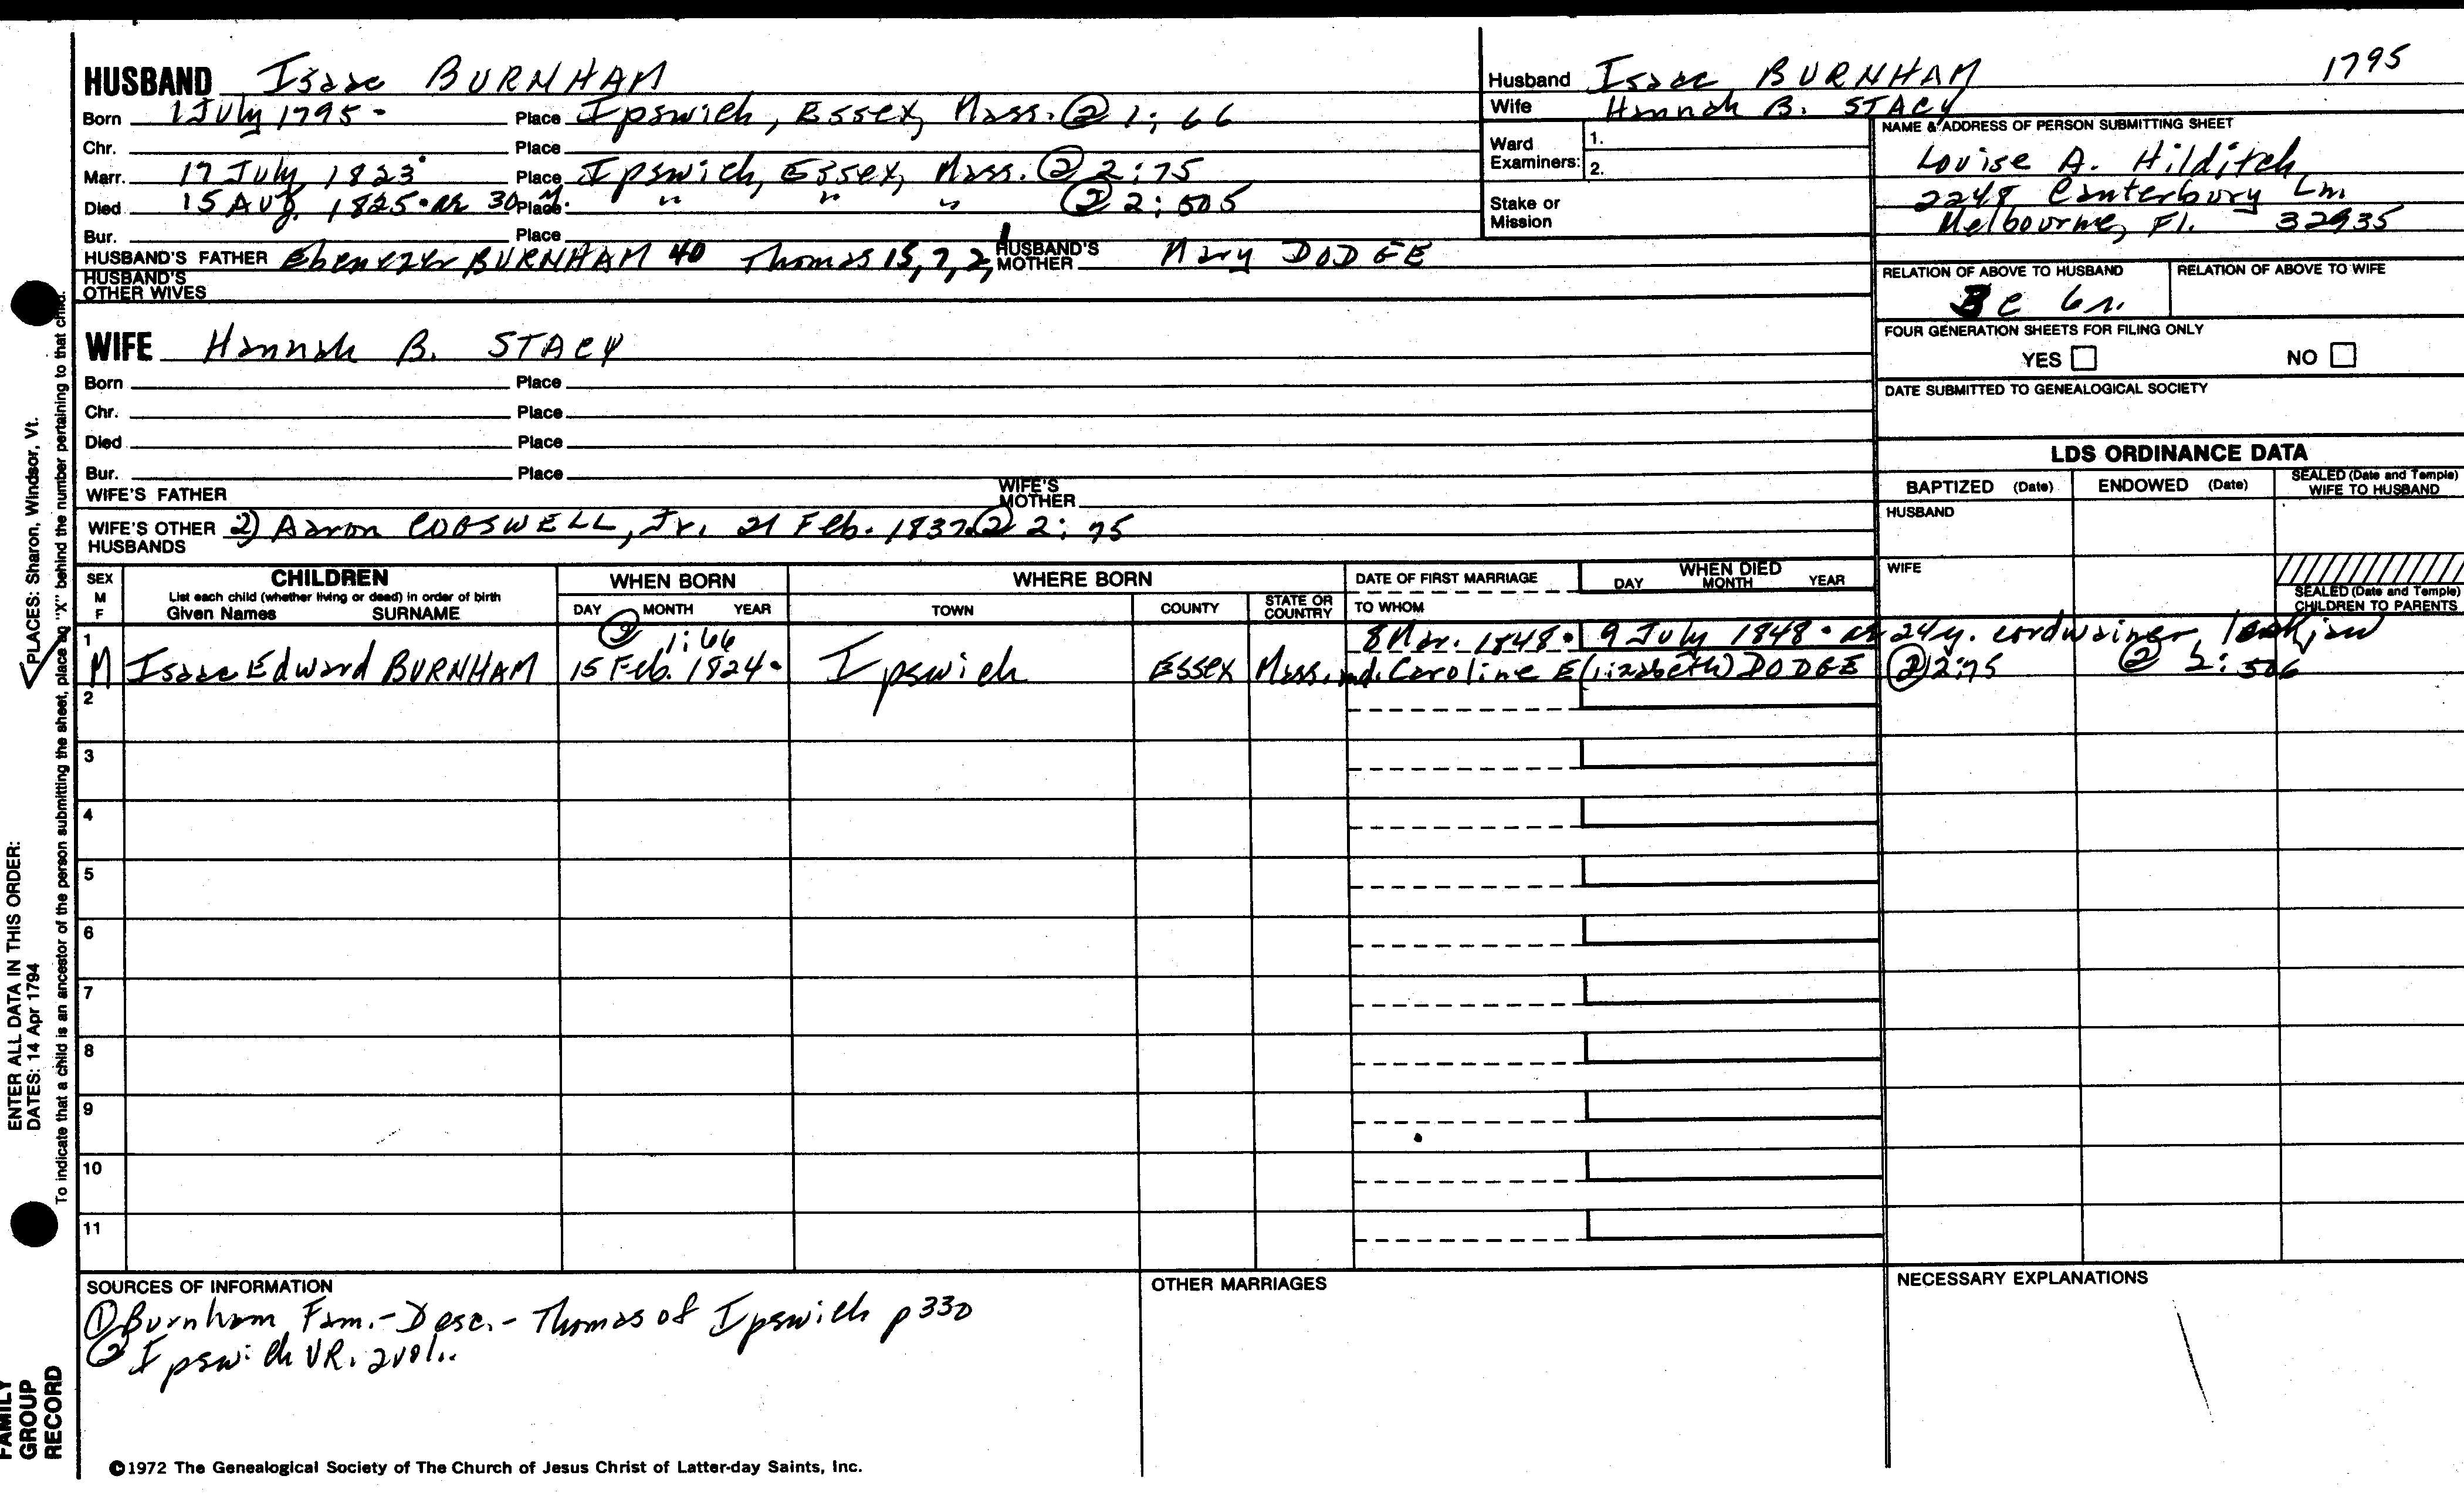 HUSBAND Isaac BURNHAM
Born 1 July 1795 - Place Ipswich, Essex, Mass. ② 1; 66
Chr. Place
Marr. 17 July 1823 Place Ipswich, Essex, Mass. ② 2:75
Died 15 Aug. 1825 • ae 30 Place " " " ② 2: 505
Bur. Place
HUSBAND'S FATHER Ebenezer BURNHAM 40 Thomas 15, 7, 2, 1 HUSBAND'S MOTHER Mary DODGE
HUSBAND'S OTHER WIVES
Husband Isaac BURNHAM 1795
Wife Hannah B. STACY
Ward Examiners: 1.
2.
Stake or Mission
NAME & ADDRESS OF PERSON SUBMITTING SHEET
Louise A. Hilditch
2248 Canterbury Ln.
Melbourne, Fl. 32935
RELATION OF ABOVE TO HUSBAND RELATION OF ABOVE TO WIFE
FOUR GENERATION SHEETS FOR FILING ONLY
YES NO
DATE SUBMITTED TO GENEALOGICAL SOCIETY
WIFE Hannah B. STACY
Born Place
Chr. Place
Died Place
Bur. Place
WIFE'S FATHER WIFE'S MOTHER
WIFE'S OTHER HUSBANDS 2) Aaron COGSWELL, Jr. 21 Feb. 1837 ② 2: 75
LDS ORDINANCE DATA
BAPTIZED (Date) ENDOWED (Date) SEALED (Date and Temple) WIFE TO HUSBAND
HUSBAND
WIFE
SEALED (Date and Temple) CHILDREN TO PARENTS
SEX M F
CHILDREN
List each child (whether living or dead) in order of birth
Given Names SURNAME
WHEN BORN
DAY MONTH YEAR
WHERE BORN
TOWN COUNTY STATE OR COUNTRY
DATE OF FIRST MARRIAGE
TO WHOM
WHEN DIED
DAY MONTH YEAR
1 ② 1:66 8 Mar. 1848 • 9 July 1848 • ae 24 y. cordwainer, lockjaw
M Isaac Edward BURNHAM 15 Feb. 1824 • Ipswich Essex Mass. md. Caroline E(lizabeth) DODGE ② 2:75 ② 2: 506
2
3
4
5
6
7
8
9
10
11
SOURCES OF INFORMATION
① Burnham Fam.- Desc.- Thomas of Ipswich p 330
② Ipswich VR. 2 vol..
OTHER MARRIAGES
NECESSARY EXPLANATIONS
©1972 The Genealogical Society of The Church of Jesus Christ of Latter-day Saints, Inc.
ENTER ALL DATA IN THIS ORDER:
DATES: 14 Apr 1794 PLACES: Sharon, Windsor, Vt.
To indicate that a child is an ancestor of the person submitting the sheet, place an "X" behind the number pertaining to that child.
FAMILY
GROUP
RECORD